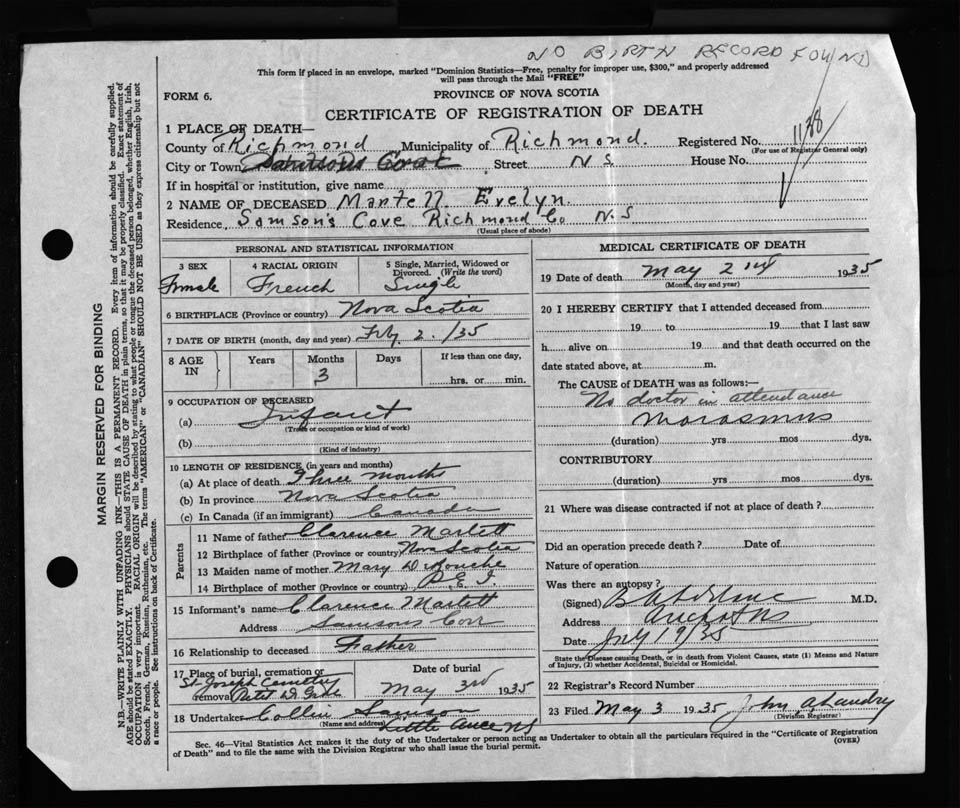 NO BIRTH RECORD FOUND
This form if placed in an envelope, marked "Dominion Statistics—Free, penalty for improper use, $300," and properly addressed
will pass through the Mail "FREE"
FORM 6.
PROVINCE OF NOVA SCOTIA
CERTIFICATE OF REGISTRATION OF DEATH
1 PLACE OF DEATH—
County of Richmond Municipality of Richmond. Registered No. 1138
(For use of Registrar General only)
City or Town Street N S House No.
If in hospital or institution, give name
2 NAME OF DECEASED Martell Evelyn.
Residence Samson's Cove Richmond Co N.S
(Usual place of abode)
PERSONAL AND STATISTICAL INFORMATION
3 SEX 4 RACIAL ORIGIN 5 Single, Married, Widowed or Divorced. (Write the word)
Female French Single
6 BIRTHPLACE (Province or country) Nova Scotia
7 DATE OF BIRTH (month, day and year) Feby 2. /35
8 AGE IN Years Months Days If less than one day,
3 hrs. or min.
9 OCCUPATION OF DECEASED
(a) Infant
(Trade or occupation or kind of work)
(b)
(Kind of industry)
10 LENGTH OF RESIDENCE (in years and months)
(a) At place of death Three months
(b) In province Nova Scotia
(c) In Canada (if an immigrant) Canada
Parents
11 Name of father Clarence Martell
12 Birthplace of father (Province or country) Nova Scotia
13 Maiden name of mother Mary
14 Birthplace of mother (Province or country) P.E.I.
15 Informant's name Clarence Martell
Address Samsons Cove
16 Relationship to deceased Father
17 Place of burial, cremation or removal Date of burial
St Joseph Cemetery
Petit De Grat May 3rd 1935
18 Undertaker Collin Samson
(Name and address) Little Anse NS
MEDICAL CERTIFICATE OF DEATH
19 Date of death May 2nd 1935
(Month, day and year)
20 I HEREBY CERTIFY that I attended deceased from
19 to 19 that I last saw
h alive on 19 and that death occurred on the
date stated above, at m.
The CAUSE of DEATH was as follows:—
No doctor in attendance
Marasmus
(duration) yrs mos dys.
CONTRIBUTORY
(duration) yrs mos dys.
21 Where was disease contracted if not at place of death?
Did an operation precede death? Date of
Nature of operation
Was there an autopsy?
(Signed) M.D.
Address Arichat NS
Date July 19/35
State the Disease causing Death, or in death from Violent Causes, state (1) Means and Nature
of Injury, (2) whether Accidental, Suicidal or Homicidal.
22 Registrar's Record Number
23 Filed May 3 1935 John A Landry
(Division Registrar)
Sec. 46—Vital Statistics Act makes it the duty of the Undertaker or person acting as Undertaker to obtain all the particulars required in the "Certificate of Registration
of Death" and to file the same with the Division Registrar who shall issue the burial permit.
(OVER)
MARGIN RESERVED FOR BINDING
N.B.—WRITE PLAINLY WITH UNFADING INK—THIS IS A PERMANENT RECORD. Every item of information should be carefully supplied.
AGE should be stated EXACTLY. PHYSICIANS should STATE CAUSE OF DEATH in plain terms, so that it may be properly classified. Exact statement of
OCCUPATION is very important. RACIAL ORIGIN will be described by stating to what people or tongue the deceased person belonged, whether English, Irish,
Scotch, French, German, Russian, Ruthenian, etc. The terms "AMERICAN" or "CANADIAN" SHOULD NOT BE USED as they express citizenship but not
a race or people. See instructions on back of Certificate.